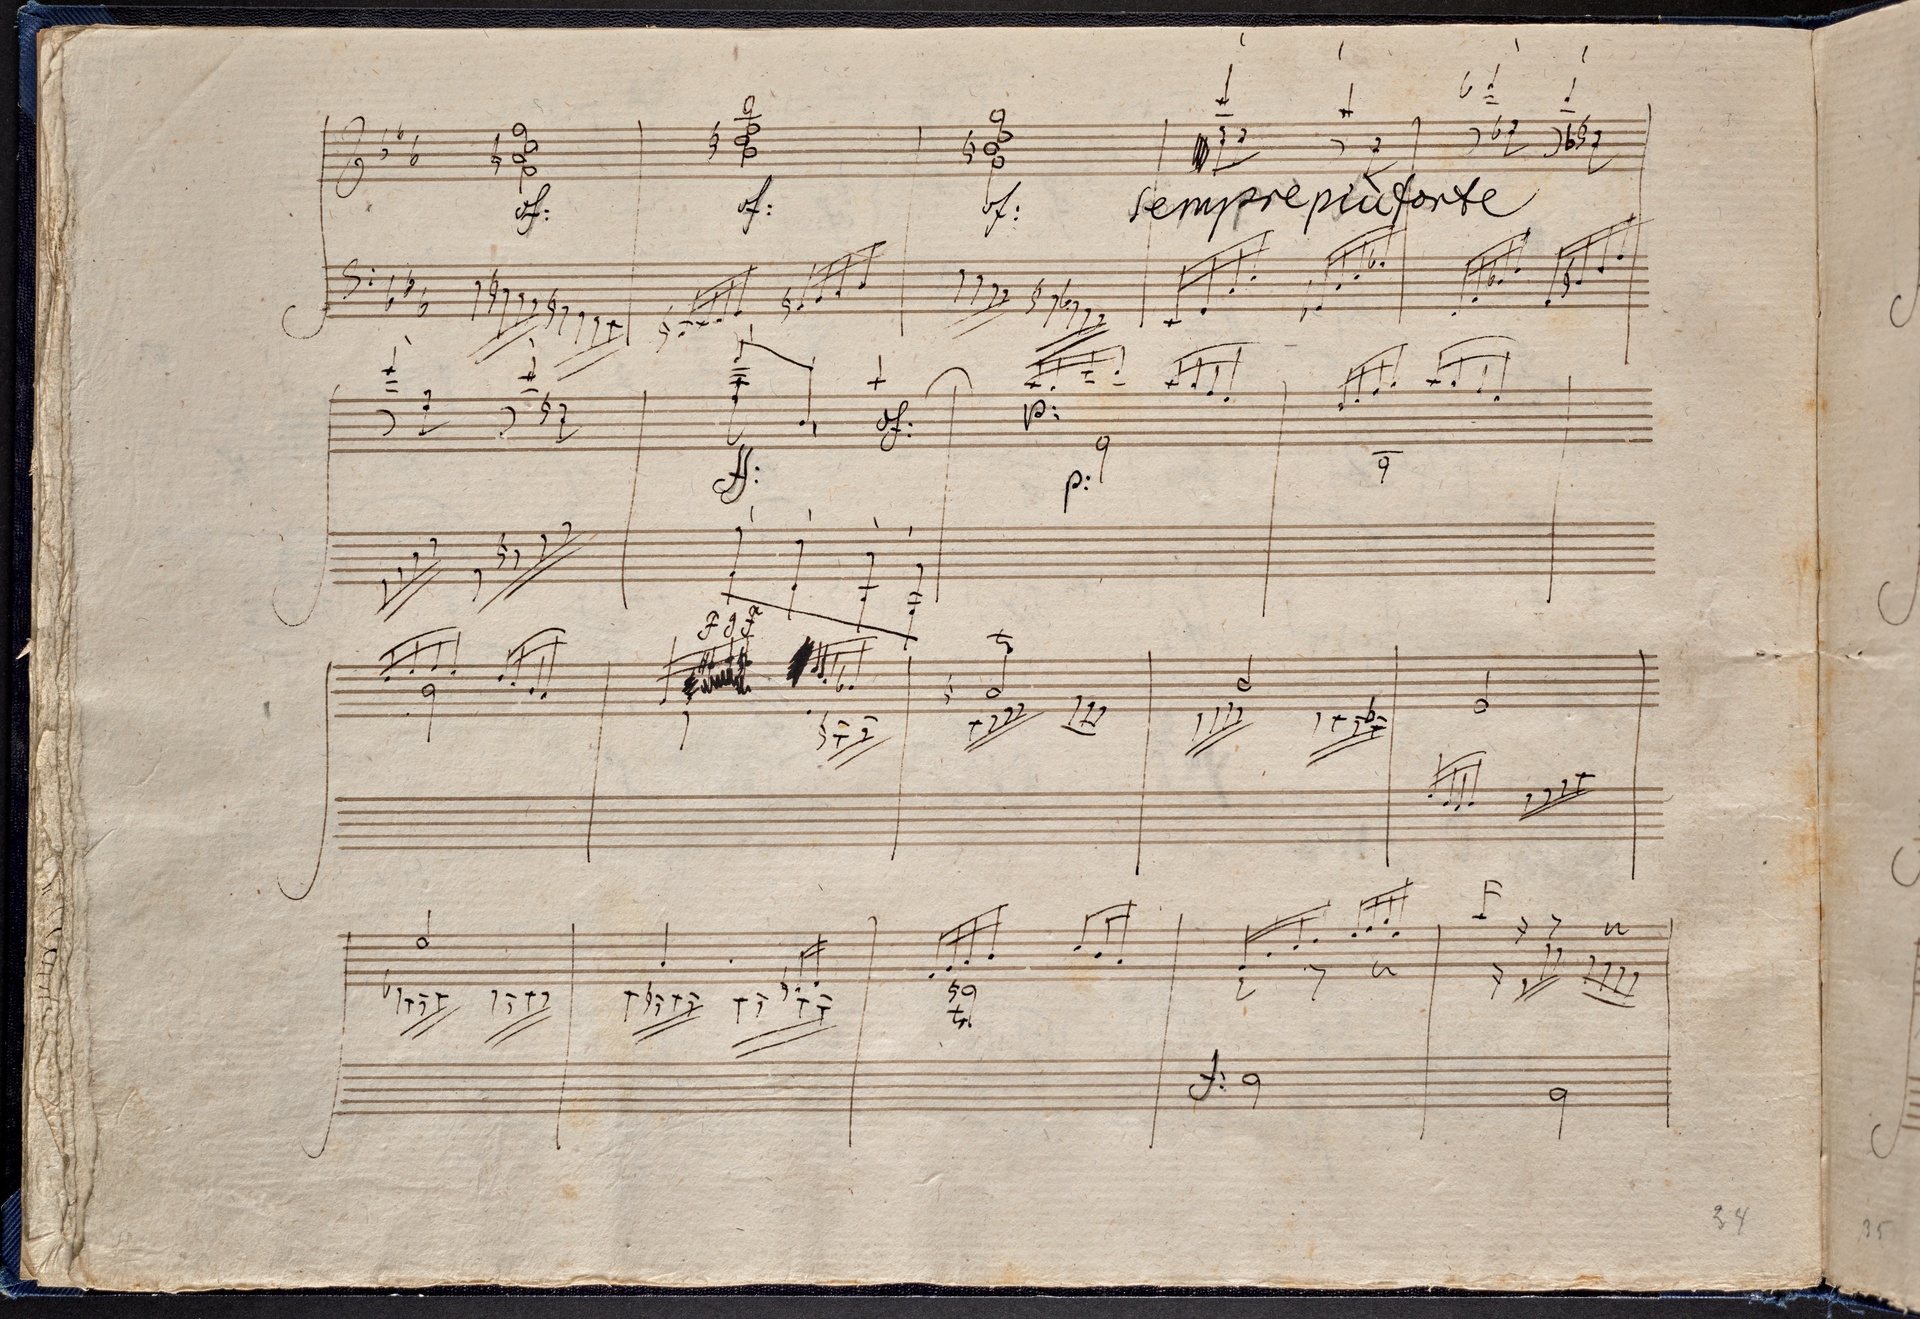 sf: sf: sf: sempre più forte
sf:
p:
ff: p:
F
f:
34
35